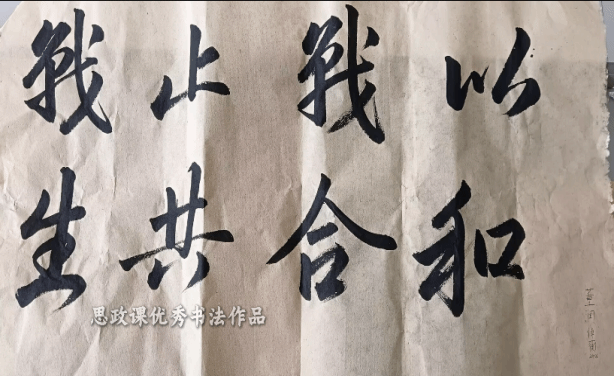 以戰止戰
和合共生
思政课优秀书法作品